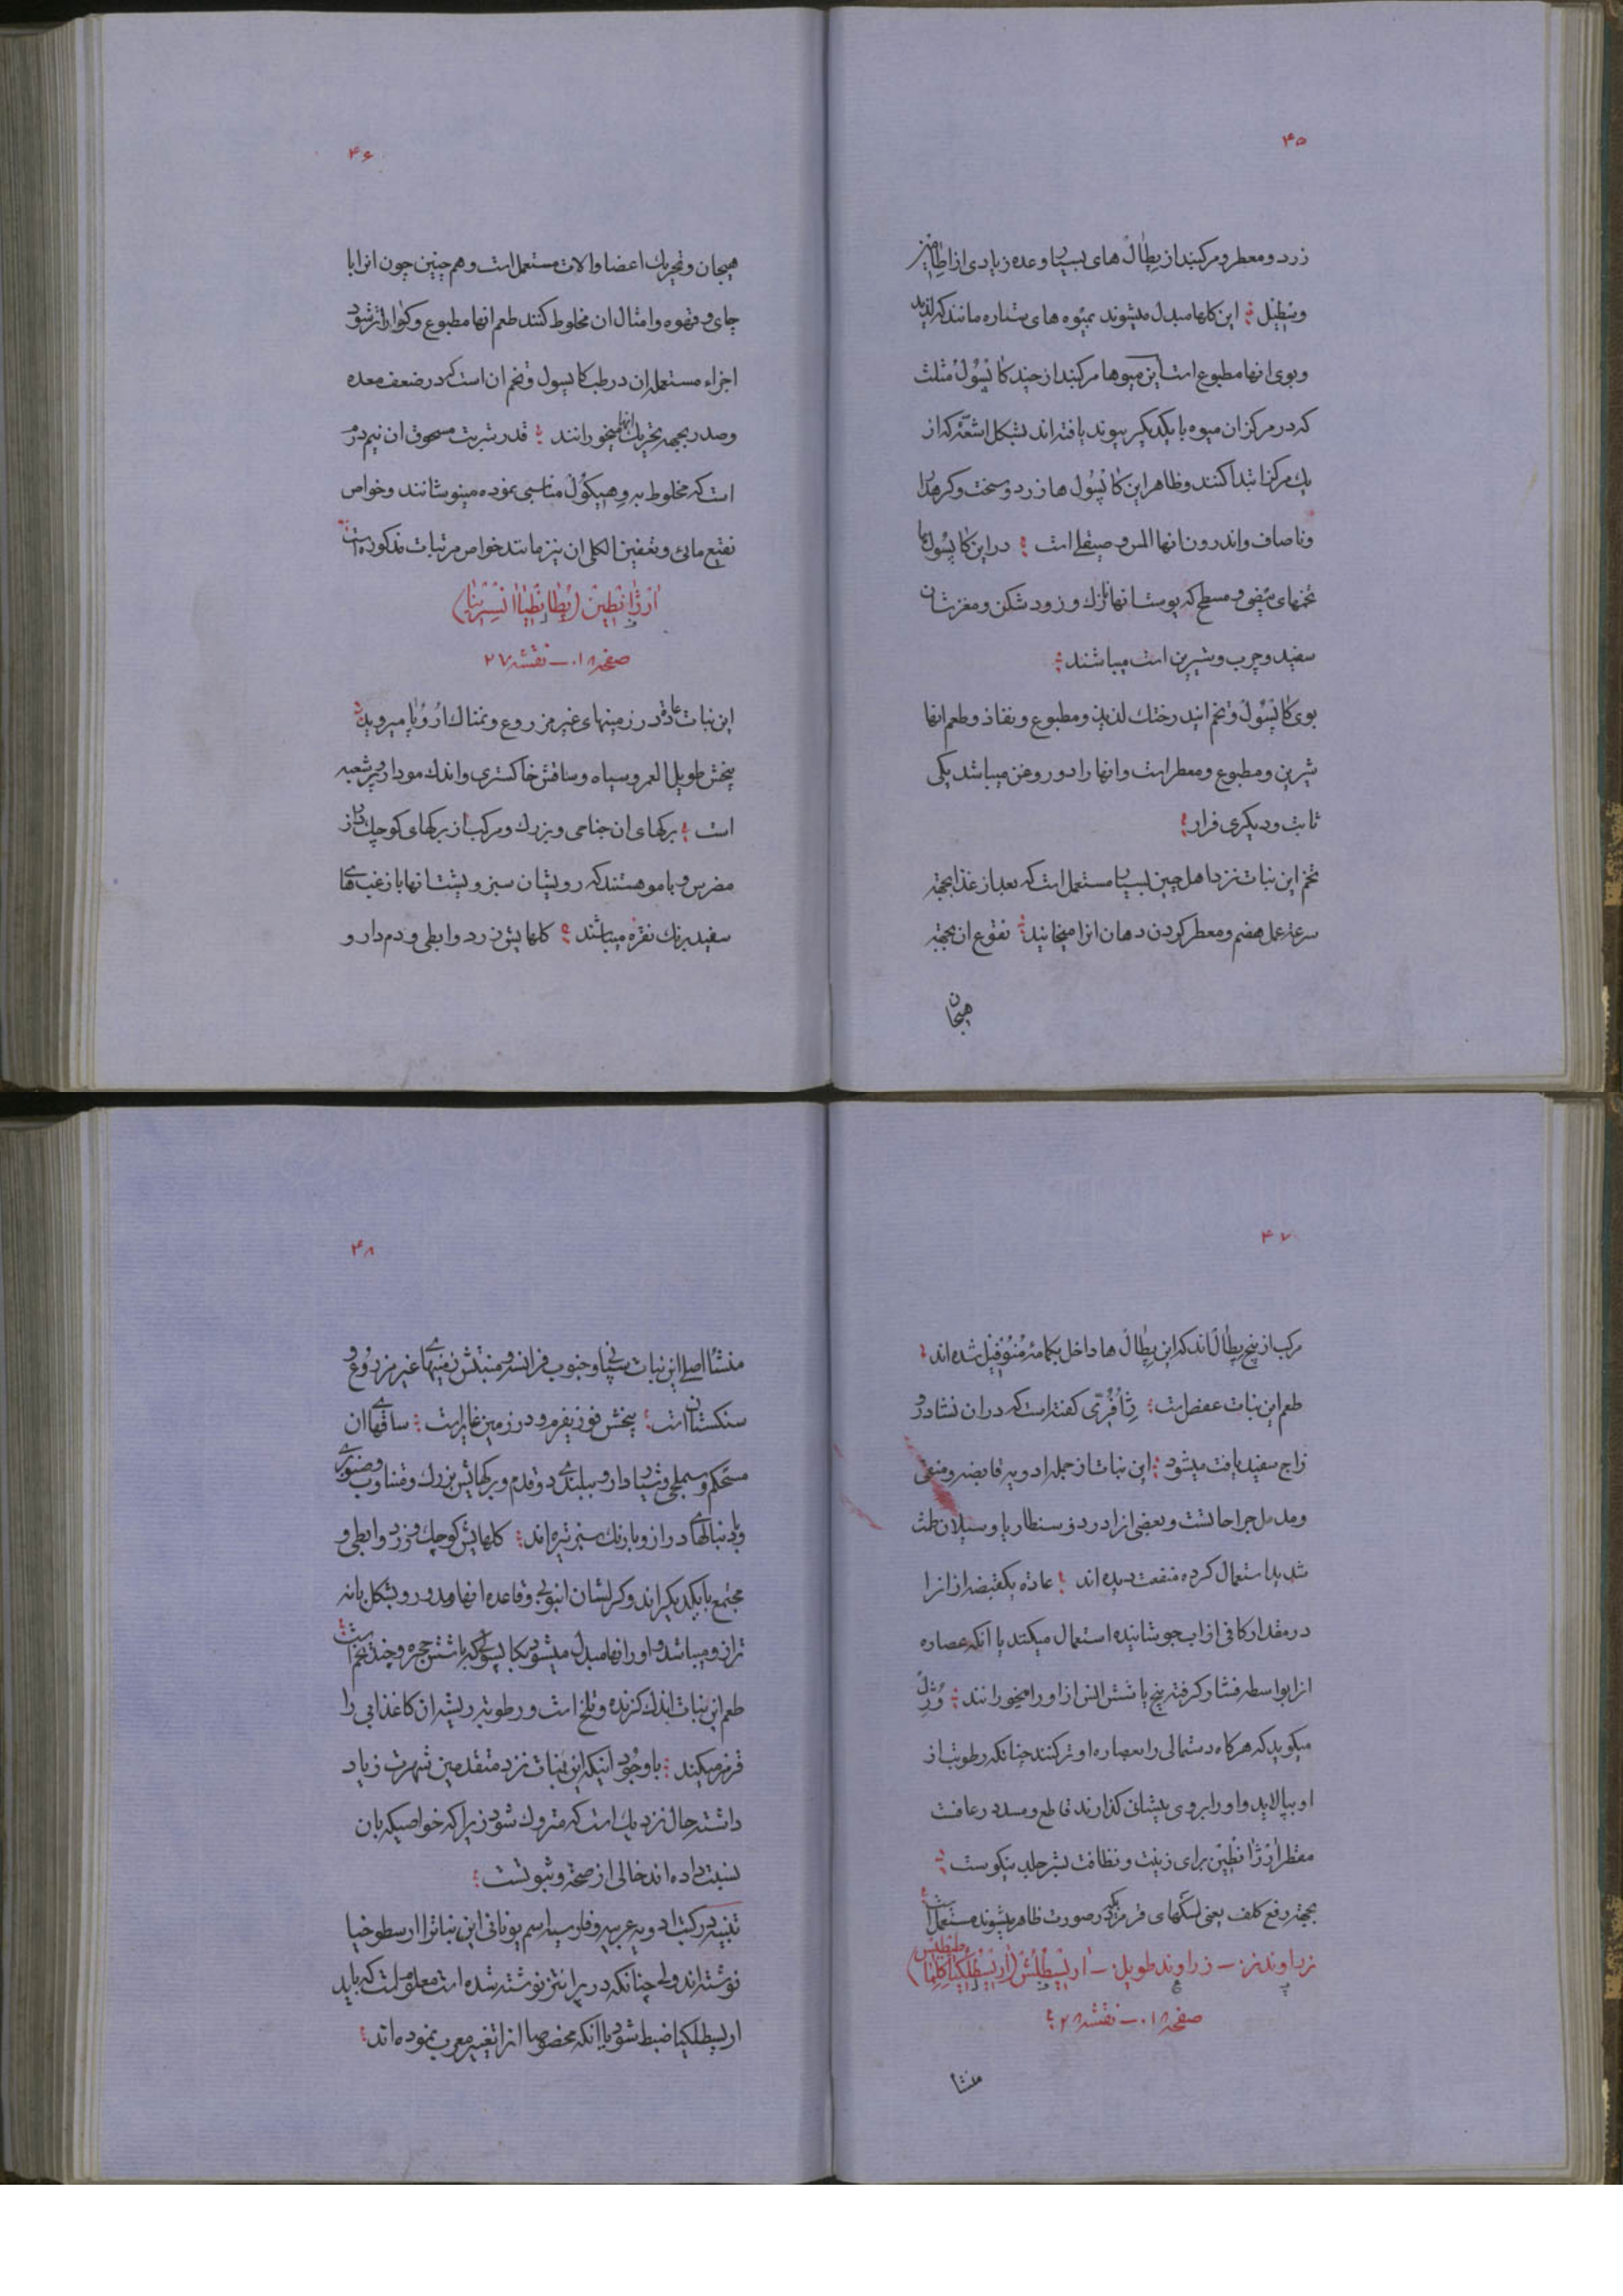 ۴۵
زرد و معطر و مرکبند از پطال های بسیار و عده زیادی از اطامیز
و پیطیل این کلها مبدل میشوند بمیوه های ستاره مانند که لذیذ
و بوی انها مطبوع است این میوها مرکبند از چند کاپسول مثلث
که در مرکز ان میوه با یکدیکر پیوند یافته اند بشکل اشعه که از
یک مرکز ابتدا کنند و ظاهر این کاپسول ها زرد و سخت و کره دار
و ناصاف و اندرون انها املس و صیقلی است در این کاپسول ها
تخمهای بیضی و مسطح که پوست انها نازک و زود شکن و مغزشان
سفید و چرب و شیرین است میباشند
بوی کاپسول و تخم این درختک لذیذ و مطبوع و نفاذ و طعم انها
شیرین و مطبوع و معطر است و انها را دو روغن میباشد یکی
ثابت و دیکری فرار
تخم این نبات نزد اهل چین بسیار مستعمل است که بعد از غذا بجهة
سرعة عمل هضم و معطر کردن دهان انرا میخایند نقوع ان بجهة
هیجان
۴۶
هیجان و تحریک اعضا و الات مستعمل است و هم چنین چون انرا با
چای و قهوه و امثال ان مخلوط کنند طعم انها مطبوع و کواراتر شود
اجزاء مستعمله ان در طب کاپسول و تخم ان است که در ضعف معده
و صدر بجهة تحریک انها میخورانند قدر شربت مسحوق ان نیم درم
است که مخلوط به وهیکول مناسبی نموده مینوشانند و خواص
نقیع مائی و تعفین الکلی ان نیز مانند خواص مرتبات مذکوره است
ارژانطین (پطانطیا انسرینا)
صفحه ۱۰۸ ـ نقشه ۲۷
این نبات عادة در زمینهای غیر مزروع و نمناک اروپا میروید
بیخش طویل العمر و سیاه و ساقش خاکستری و اندک مودار و پر شعبه
است برکهای ان جناحی و بزرک و مرکب از برکهای کوچک دراز
مضرس و با مو هستند که رویشان سبز و پشت انها با زغب های
سفید برنک نقره میباشند کلهایش زرد و ابطی و دم دار و
۴۷
مرکب از پنج پطال اند که این پطال ها داخل بکاسه منوفیل شده اند
طعم این نبات عفص است ژئفری کفته است که در ان نشادر و
زاج سفید یافت میشود این نبات از جمله ادویه قابضه و منقی
و مدمل جراحاتست و بعضی انرا در دوسنطاریا و سیلان طمث
شدید استعمال کرده منفعت دیده اند عادة یکقبضه از انرا
در مقدار کافی از اب جوشانیده استعمال میکنند یا انکه عصاره
انرا بواسطه فشار کرفته پنج یا شش النس از او را میخورانند
میکوید که هرکاه دستمالی را بعصاره او تر کنند چنانکه رطوبت از
او بپالاید و او را بروی پیشانی کذارند قاطع و مسدد رعافست
مقطر ارژانطین برای زینت و نظافت بشر جلد نیکوست
بجهة رفع کلف یعنی لکهای قرمزیکه در صورت ظاهر میشوند مستعمل است
زراوند ـ زراوند طویل ـ ارسطلش (ارسطلکیا کلمطیطس)
صفحه ۱۰۸ ـ نقشه ۲۸
منشا
۴۸
منشا اصلی این نبات سپانی و جنوب فرانسه و منبتش زمینهای غیر مزروع و
سنکستان است بیخش فوزیفرم و در زمین غایر است ساقهای ان
مستحکم و سمپلی و شیاردار و ببلندی دو قدم و برکهایش بزرک و متناوب و صنوبری
و با دنبالهای دراز و با رنک سبز تیره اند کلهایش کوچک و زرد و ابطی و
مجتمع با یکدیکر اند و کرلشان انبوبی و قاعده انها مدور و بشکل زبانه
ترازو میباشد و اوار انها مبدل میشود بکاپسولی که با شش حجره و چند تخم است
طعم این نبات اندک کزنده و تلخ است و رطوبة ریشه ان کاغذ ابی را
قرمز میکند با وجود اینکه این نبات نزد متقدمین شهرت زیاد
داشته حال نزدیک است که متروک شود زیرا که خواصیکه بان
نسبت داده اند خالی از صحة و ثبوتست
تنبیه در کتب ادویه عربیه و فارسیه اسم یونانی این نبات را ارسطوخیا
نوشته اند ولی چنانکه در برانتز نوشته شده است معلوم است که باید
ارسطلکیا ضبط شود یا انکه مخصوصا انرا تغییر معرب نموده اند